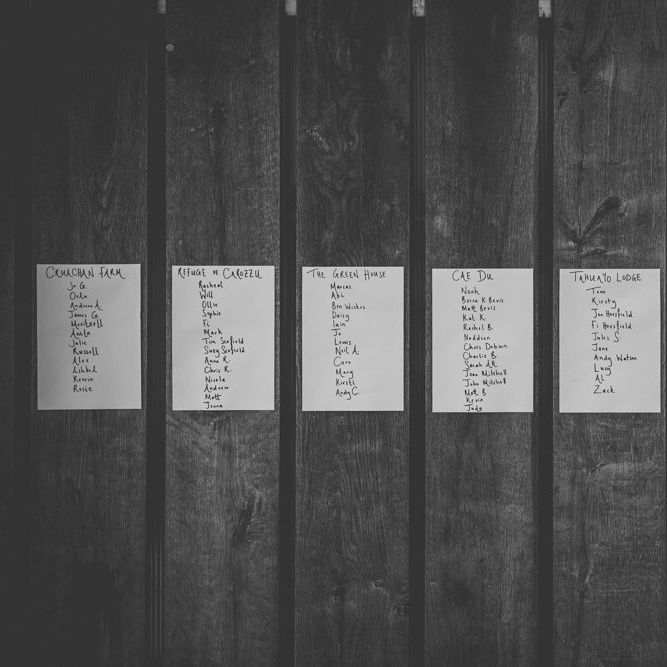 CRUACHAN FARM
Jo G.
Orla
Andrew A.
James G.
Meritxell
Anita
Julie
Russell
Alex
Ishbel
Kerrin
Rosie
REFUGE DE CAROZZU
Racheal
Will
Ollie
Sophie
Fi
Mark
Tim Scofield
Suzy Scofield
Anna R.
Chris R.
Nicola
Andrew
Matt
Jenna
THE GREEN HOUSE
Marcus
Abi
Ben Wickes
Daisy
Iain
Jo
Lewis
Neil A.
Caro
Mary
Kirsti
Andy C.
CAE DU
Noah
Becca K Bevis
Matt Bevis
Kat K.
Rachel B.
Haddson
Chris Dobson
Charlie B.
Sarah AR
Joan Mitchell
John Mitchell
Matt B
Kevin
Judy
TAHUAYO LODGE
Tom
Kirsty
Jon Horsfield
Fi Horsfield
Jules S.
Jane
Andy Watson
Lucy
Al
Zack